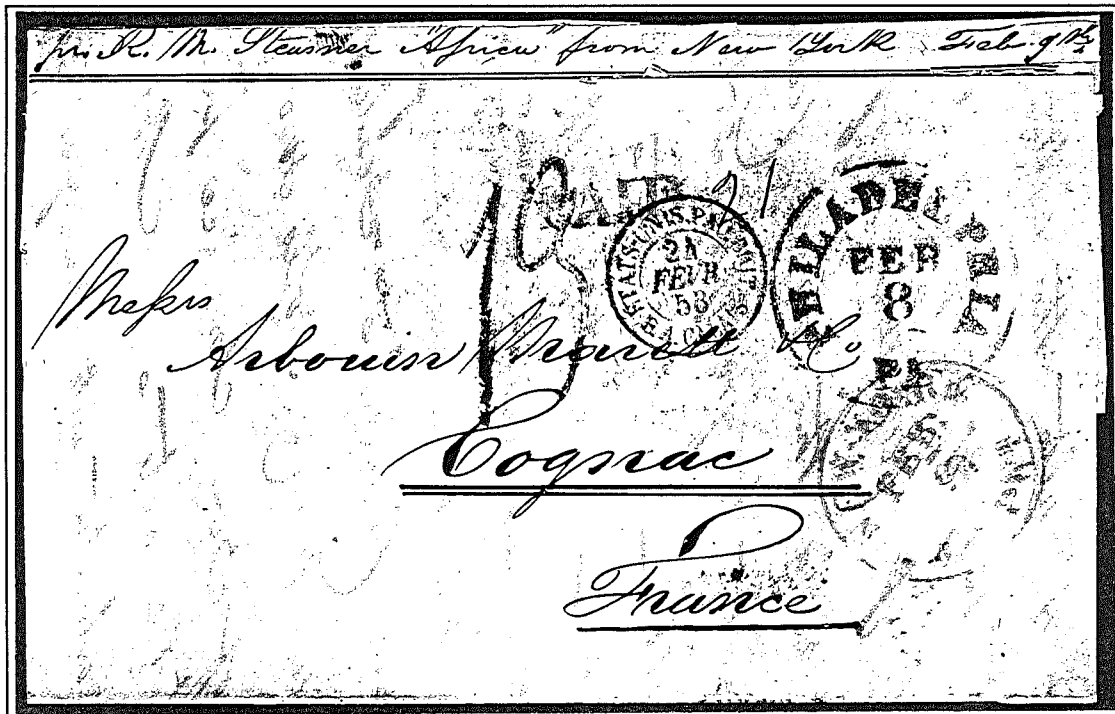 pr. R. M. Steamer "Africa" from New York Feb. 9th
PAID 21
ETATS-UNIS. PAQ. BRIT.
24
FEVR
53
PHILADELPHIA
FEB
8
PA
Messrs
Arbouin Marett & Co
FEB.
9
Cognac
France